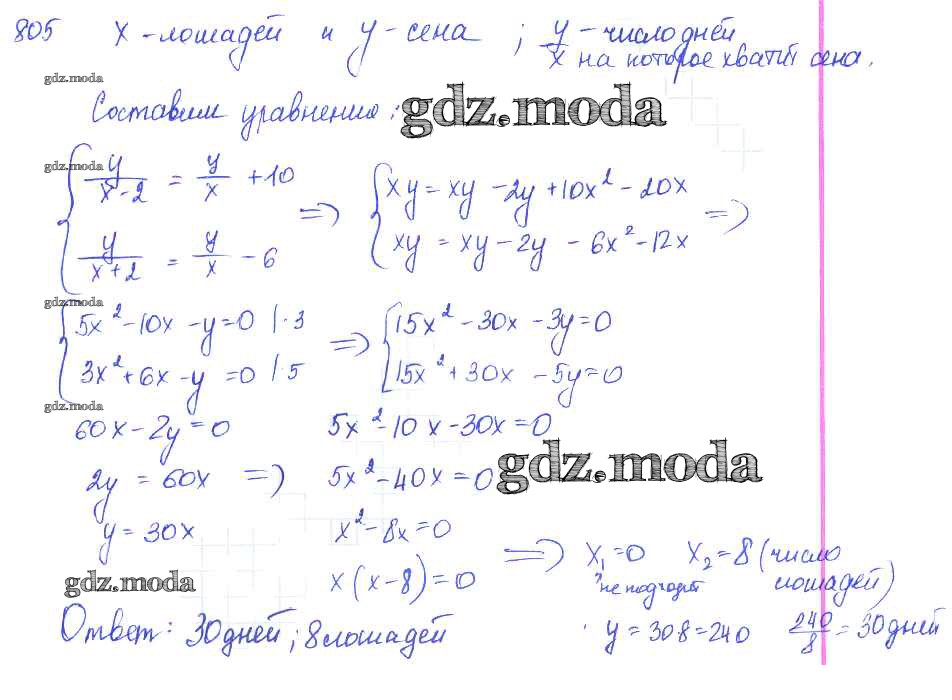 805 x - лошадей и y - сена ; y/x - число дней
на которое хватит сена.
gdz.moda
Составим уравнения:
gdz.moda
gdz.moda
{ y/(x-2) = y/x + 10 => { xy = xy - 2y + 10x² - 20x =>
{ y/(x+2) = y/x - 6 { xy = xy - 2y - 6x² - 12x
gdz.moda
{ 5x² - 10x - y = 0 |·3 => { 15x² - 30x - 3y = 0
{ 3x² + 6x - y = 0 |·5 { 15x² + 30x - 5y = 0
gdz.moda
60x - 2y = 0 5x² - 10x - 30x = 0
2y = 60x => 5x² - 40x = 0
gdz.moda
y = 30x x² - 8x = 0
x (x - 8) = 0 => x₁ = 0 x₂ = 8 (число лошадей)
не подходит
gdz.moda
Ответ: 30 дней; 8 лошадей
y = 30·8 = 240 240/8 = 30 дней